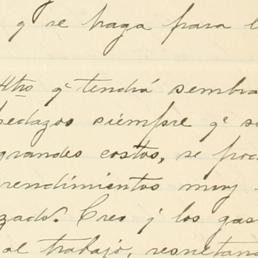 y se haga para l
Htro qe tendrá sembra
pedazos siempre qe s
grandes costos, se pro
rendimientos muy
zado. Creo q los gas
al trabajo, respetan